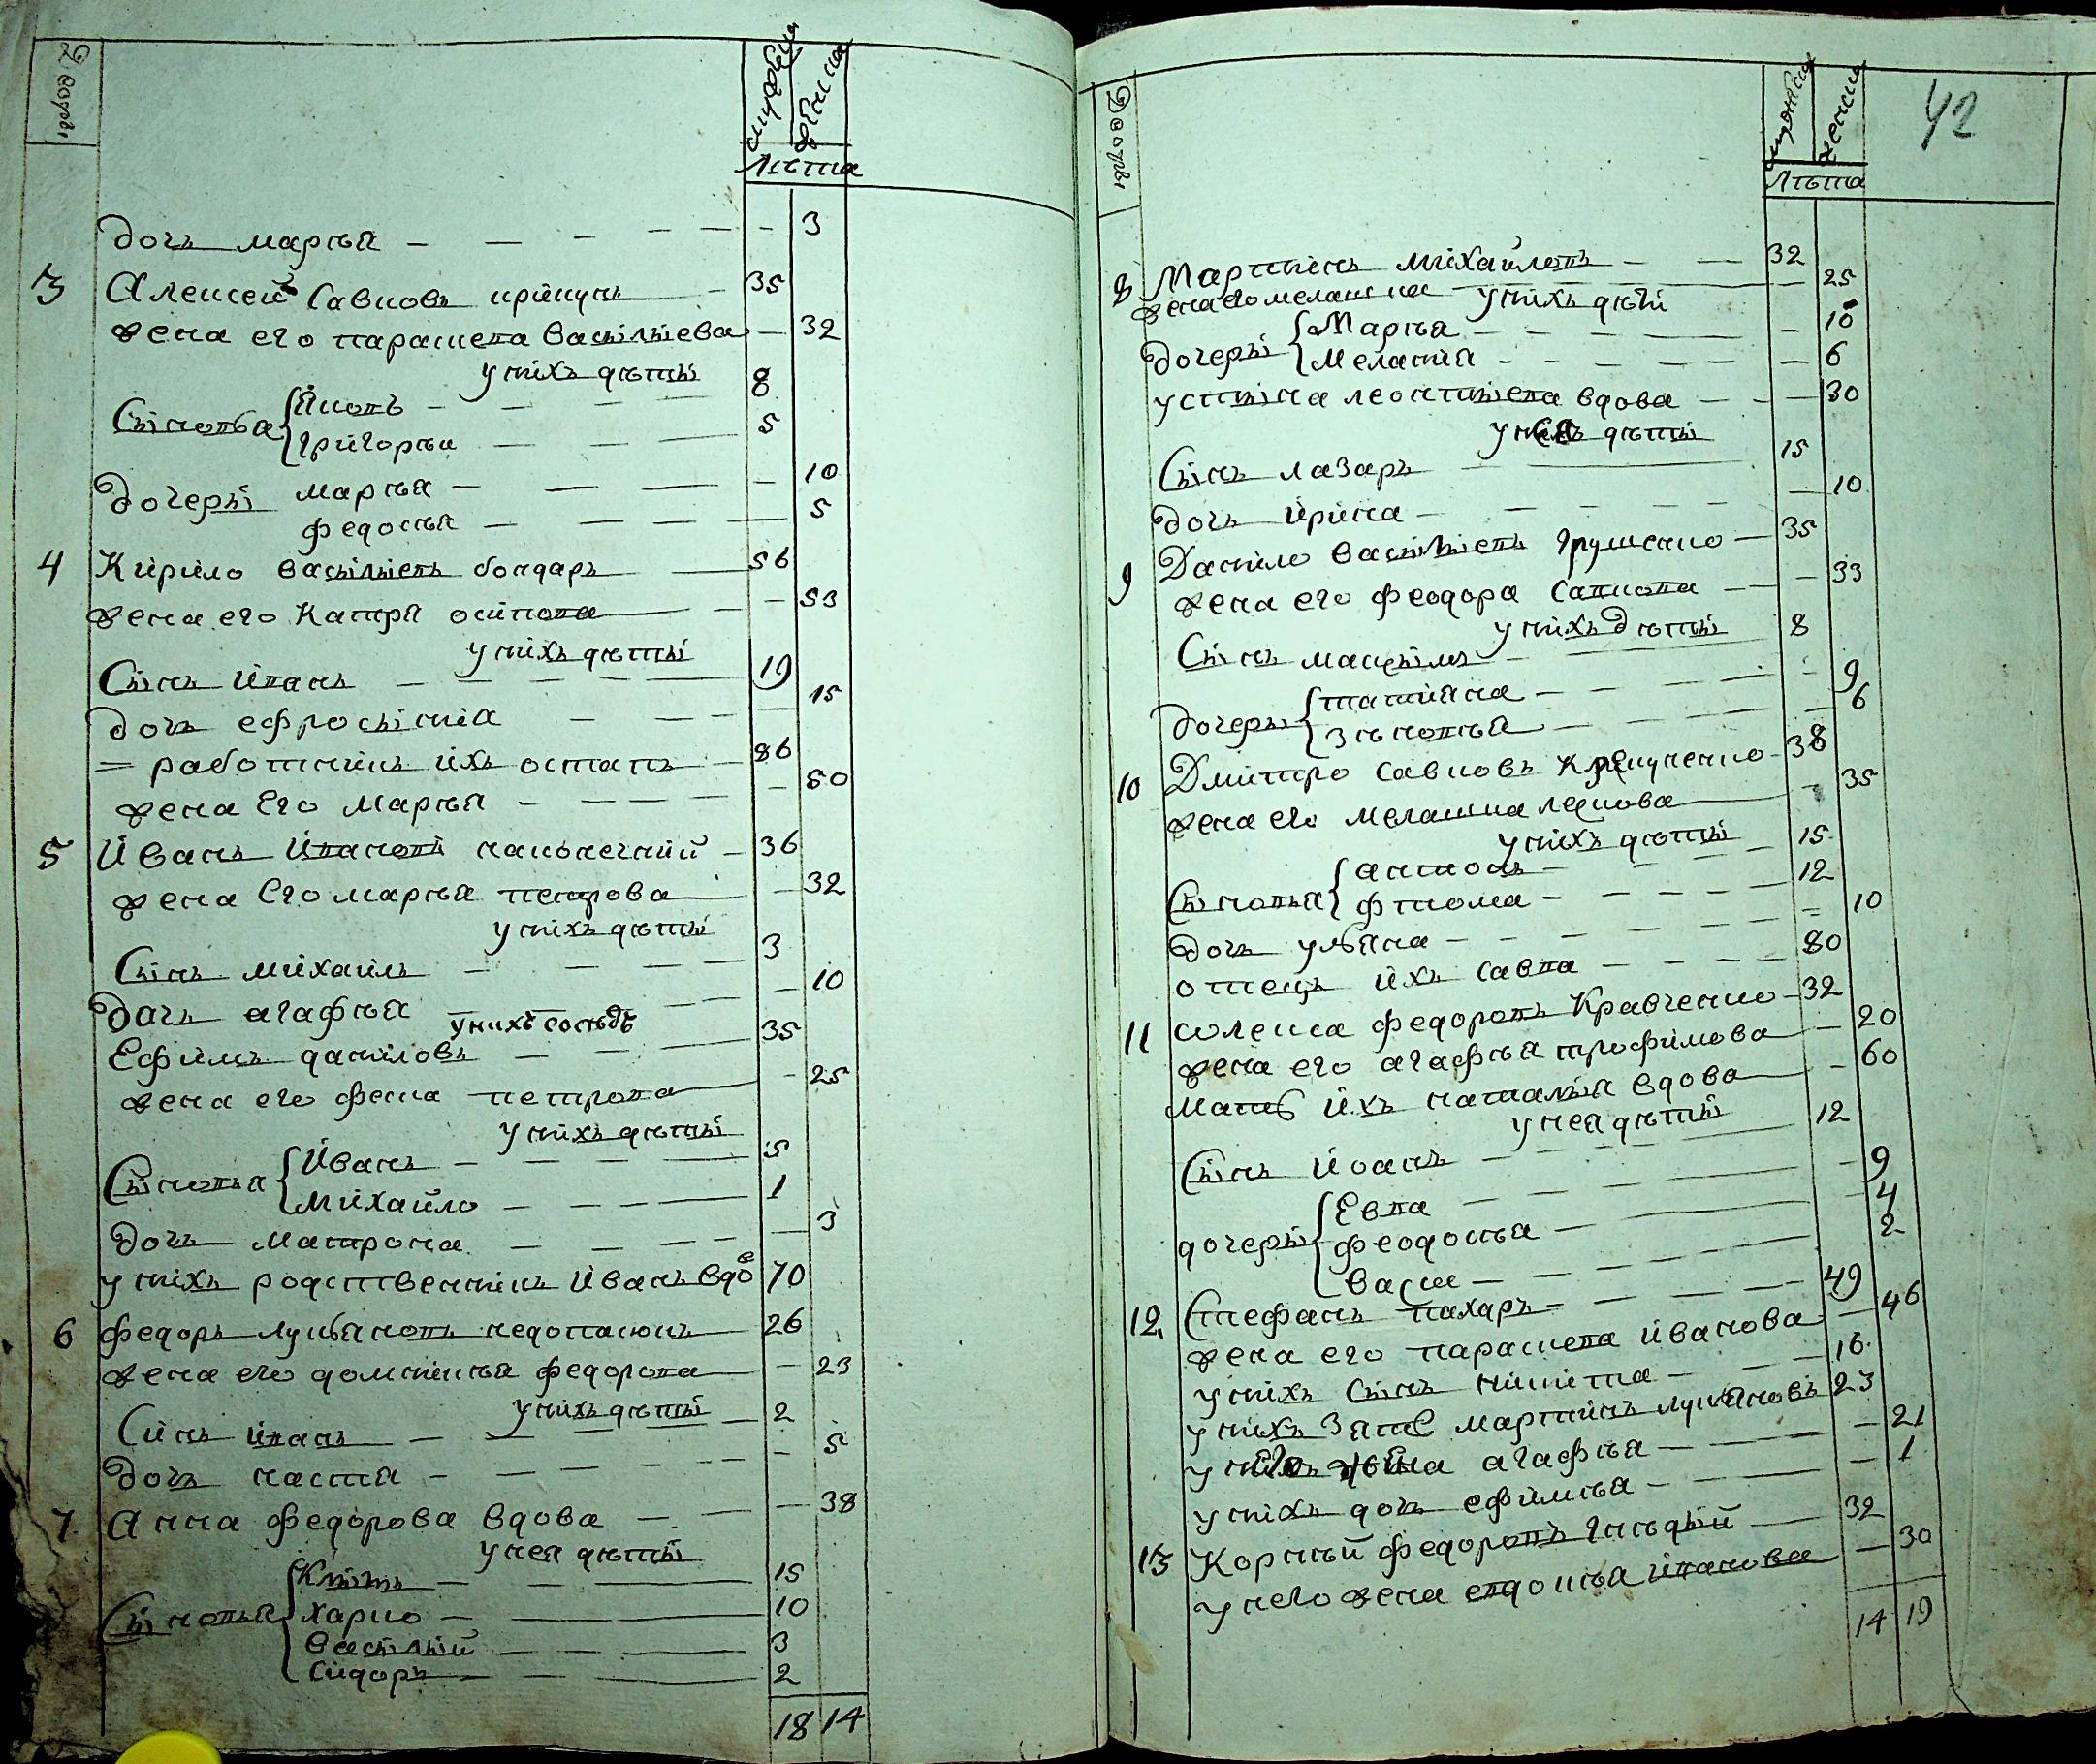 Дворы
мужеска
женска
Лѣта
дочь марѣя - 3
3 Алексей Савковъ кривунъ - 35
жена его параскева васылыева - 32
у нихъ дѣты
Сыновья Яковъ - 8
григорѣи - 5
дочеры марѣя - 10
федосѣя - 5
4 Кирило васылыевъ бондаръ - 56
жена его катря осипова - 53
у нихъ дѣты
Сынъ иванъ - 19
дочь ефросыния - 15
= работникъ ихъ остапъ - 86
жена Его марѣя - 50
5 Иванъ Ивановъ наконечний - 36
жена Его марѣя петрова - 32
у нихъ дѣты
Сынъ михаилъ - 3
дачь агафѣя - 10
у нихъ сосѣдъ
Ефимъ даниловъ - 35
жена его феска петрова - 25
у нихъ дѣты
Сыновья Иванъ - 5
михайло - 1
дочь матрона - 3
у нихъ родственникъ иванъ вдо 70
6 федоръ лукьяновъ недопасюкъ 26
жена его домникѣя федорова - 23
у нихъ дѣты
Синъ иванъ - 2
дочь настя - 5
7 Анна федорова вдова - 38
у нея дѣты
Сыновья Клымъ - 15
харко - 10
васылый - 3
сидоръ - 2
18 14
42
Дворы
мужеска
женска
Лѣта
8 Мартинъ михайловъ - 32
жена его мелашка - 25
у нихъ дѣти
дочеры Марѣя - 10
мелания - 6
устина леонтиева вдова - 30
у нея дѣты
Сынъ лазаръ 15
дочь ирина - 10
9 Данило васылыевъ грушенко - 35
жена его феодора савкова - 33
у нихъ дѣты
Сынъ максымъ - 8
дочеры татияна - 9
зѣновѣя - 6
10 Дмитро савковъ Кривученко - 38
жена его мелашка лескова - 35
у нихъ дѣты
Сыновья антонъ - 15
фтома - 12
дочь ульяна - 10
отецъ ихъ савва - 80
11 олекса федоровъ Кравченко - 32
жена его агафѣя трофимова - 20
мать ихъ наталыя вдова - 60
у нея дѣты
Сынъ Иванъ - 12
дочеры Евва - 9
феодосѣя - 4
васси - 2
12 Стефанъ пахаръ - 49
жена его параскева иванова - 46
у нихъ сынъ никита - 16
у нихъ зять мартинъ лукяновъ 23
у него жена агафѣя - 21
у нихъ дочь ефимѣя - 1
13 Корнѣй федоровъ гнѣдый - 32
у него жена евдокѣя иванова - 30
14 19